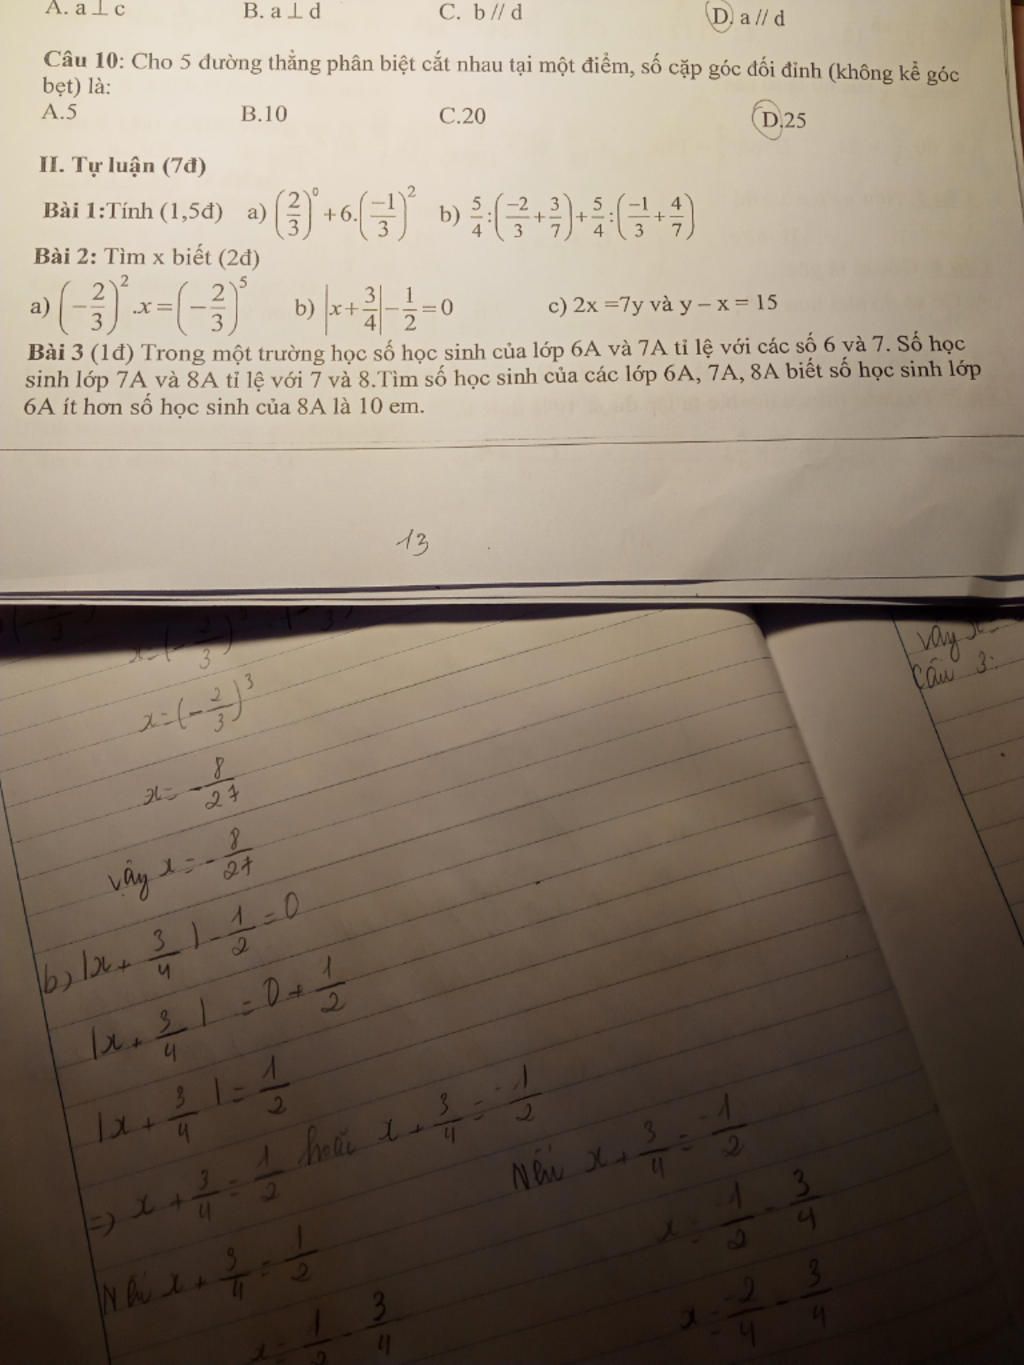 A. a ⊥ c B. a ⊥ d C. b // d D. a // d
Câu 10: Cho 5 đường thẳng phân biệt cắt nhau tại một điểm, số cặp góc đối đỉnh (không kể góc
bẹt) là:
A.5 B.10 C.20 D.25
II. Tự luận (7đ)
Bài 1:Tính (1,5đ) a) (2/3)^0 + 6.(-1/3)^2 b) 5/4:(-2/3+3/7)+5/4:(-1/3+4/7)
Bài 2: Tìm x biết (2đ)
a) (-2/3)^2 .x = (-2/3)^5 b) |x+3/4|-1/2=0 c) 2x =7y và y – x = 15
Bài 3 (1đ) Trong một trường học số học sinh của lớp 6A và 7A tỉ lệ với các số 6 và 7. Số học
sinh lớp 7A và 8A tỉ lệ với 7 và 8.Tìm số học sinh của các lớp 6A, 7A, 8A biết số học sinh lớp
6A ít hơn số học sinh của 8A là 10 em.
13
vậy x =
Câu 3:
x = (-2/3)^3
x = -8/27
vậy x = -8/27
b) |x + 3/4| - 1/2 = 0
|x + 3/4| = 0 + 1/2
|x + 3/4| = 1/2
=> x + 3/4 = 1/2 hoặc x + 3/4 = -1/2
Nếu x + 3/4 = 1/2
x = 1/2 - 3/4
Nếu x + 3/4 = -1/2
x = -1/2 - 3/4
x = -2/4 - 3/4